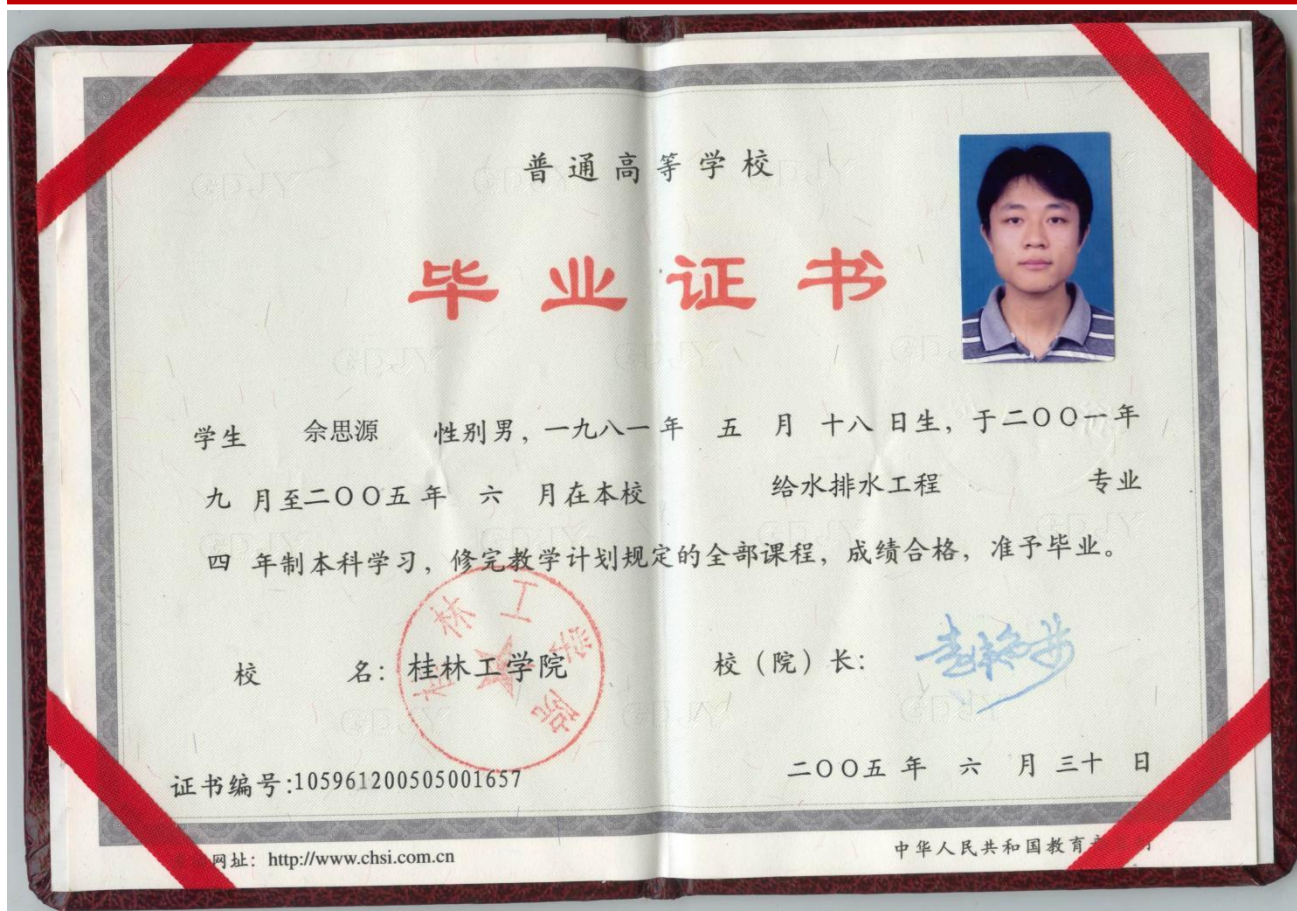 普通高等学校
毕业证书
学生 佘思源 性别男，一九八一年 五 月 十八 日生，于二〇〇一年
九 月至二〇〇五年 六 月在本校 给水排水工程 专业
四 年制本科学习，修完教学计划规定的全部课程，成绩合格，准予毕业。
校 名：桂林工学院 校（院）长：
桂林工学院
二〇〇五 年 六 月 三十 日
证书编号:105961200505001657
网址：http://www.chsi.com.cn
中华人民共和国教育
GDJY